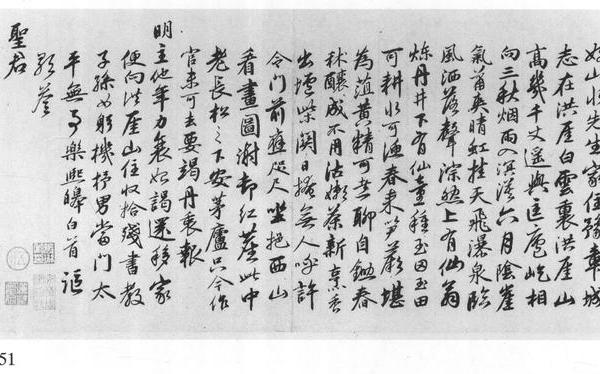 好山水先生家住豫章城
志在洪崖白雲裏洪崖山
高幾千丈遙與匡廬屹相
向三秋烟雨入溟濛六月陰崖
氣蕭爽晴虹挂天飛瀑泉臨
風洒落聲淙然上有仙翁
爍丹井下有仙童種玉田玉田
可耕水可漁春來笋蕨堪
為菹黃精可煮聊自鋤春
秫釀成不用沽嫩茶新烹香
出爐柴關日掩無人呼許
令門前在咫尺坐挹西山
看畫圖謝却紅塵此中
老長松之下安茅廬只今作
官未可去要竭丹衷報
明主他年力衰始謁還移家
便向洪崖山住收拾殘書教
子孫女躬機杼男當門太
平無事樂熙皞白首謳
歌答
聖君
51